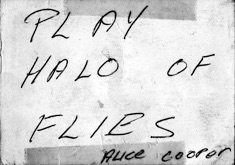 PLAY
HALO OF
FLIES
ALICE COOPER